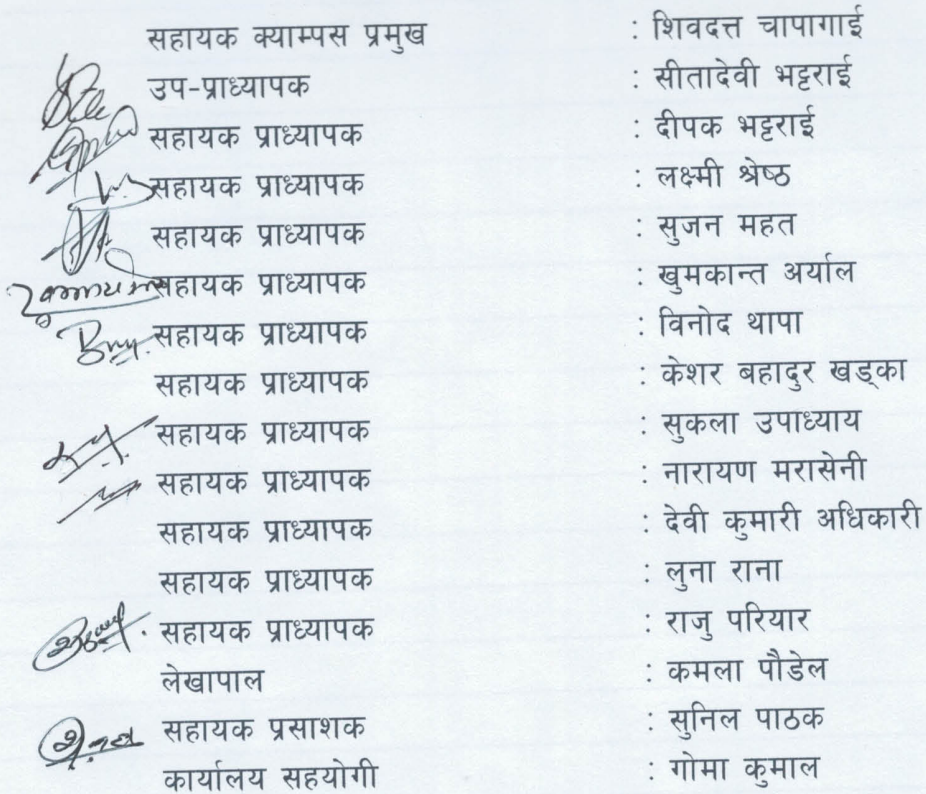 सहायक क्याम्पस प्रमुख : शिवदत्त चापागाई
उप-प्राध्यापक : सीतादेवी भट्टराई
सहायक प्राध्यापक : दीपक भट्टराई
सहायक प्राध्यापक : लक्ष्मी श्रेष्ठ
सहायक प्राध्यापक : सुजन महत
सहायक प्राध्यापक : खुमकान्त अर्याल
सहायक प्राध्यापक : विनोद थापा
सहायक प्राध्यापक : केशर बहादुर खड्का
सहायक प्राध्यापक : सुकला उपाध्याय
सहायक प्राध्यापक : नारायण मरासेनी
सहायक प्राध्यापक : देवी कुमारी अधिकारी
सहायक प्राध्यापक : लुना राना
सहायक प्राध्यापक : राजु परियार
लेखापाल : कमला पौडेल
सहायक प्रसाशक : सुनिल पाठक
कार्यालय सहयोगी : गोमा कुमाल